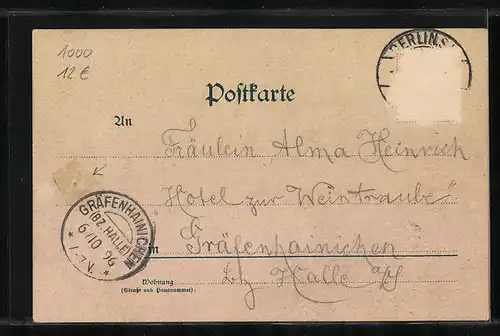 1000
12 €
BERLIN S
Postkarte
An
Fräulein Alma Heinrich
Hotel zur Weintraube"
in Gräfenhainichen
Wohnung
(Straße und Hausnummer):
bz Halle a/S
GRÄFENHAINICHEN
(BZ. HALLE)
6/10 96
* 7 V. *